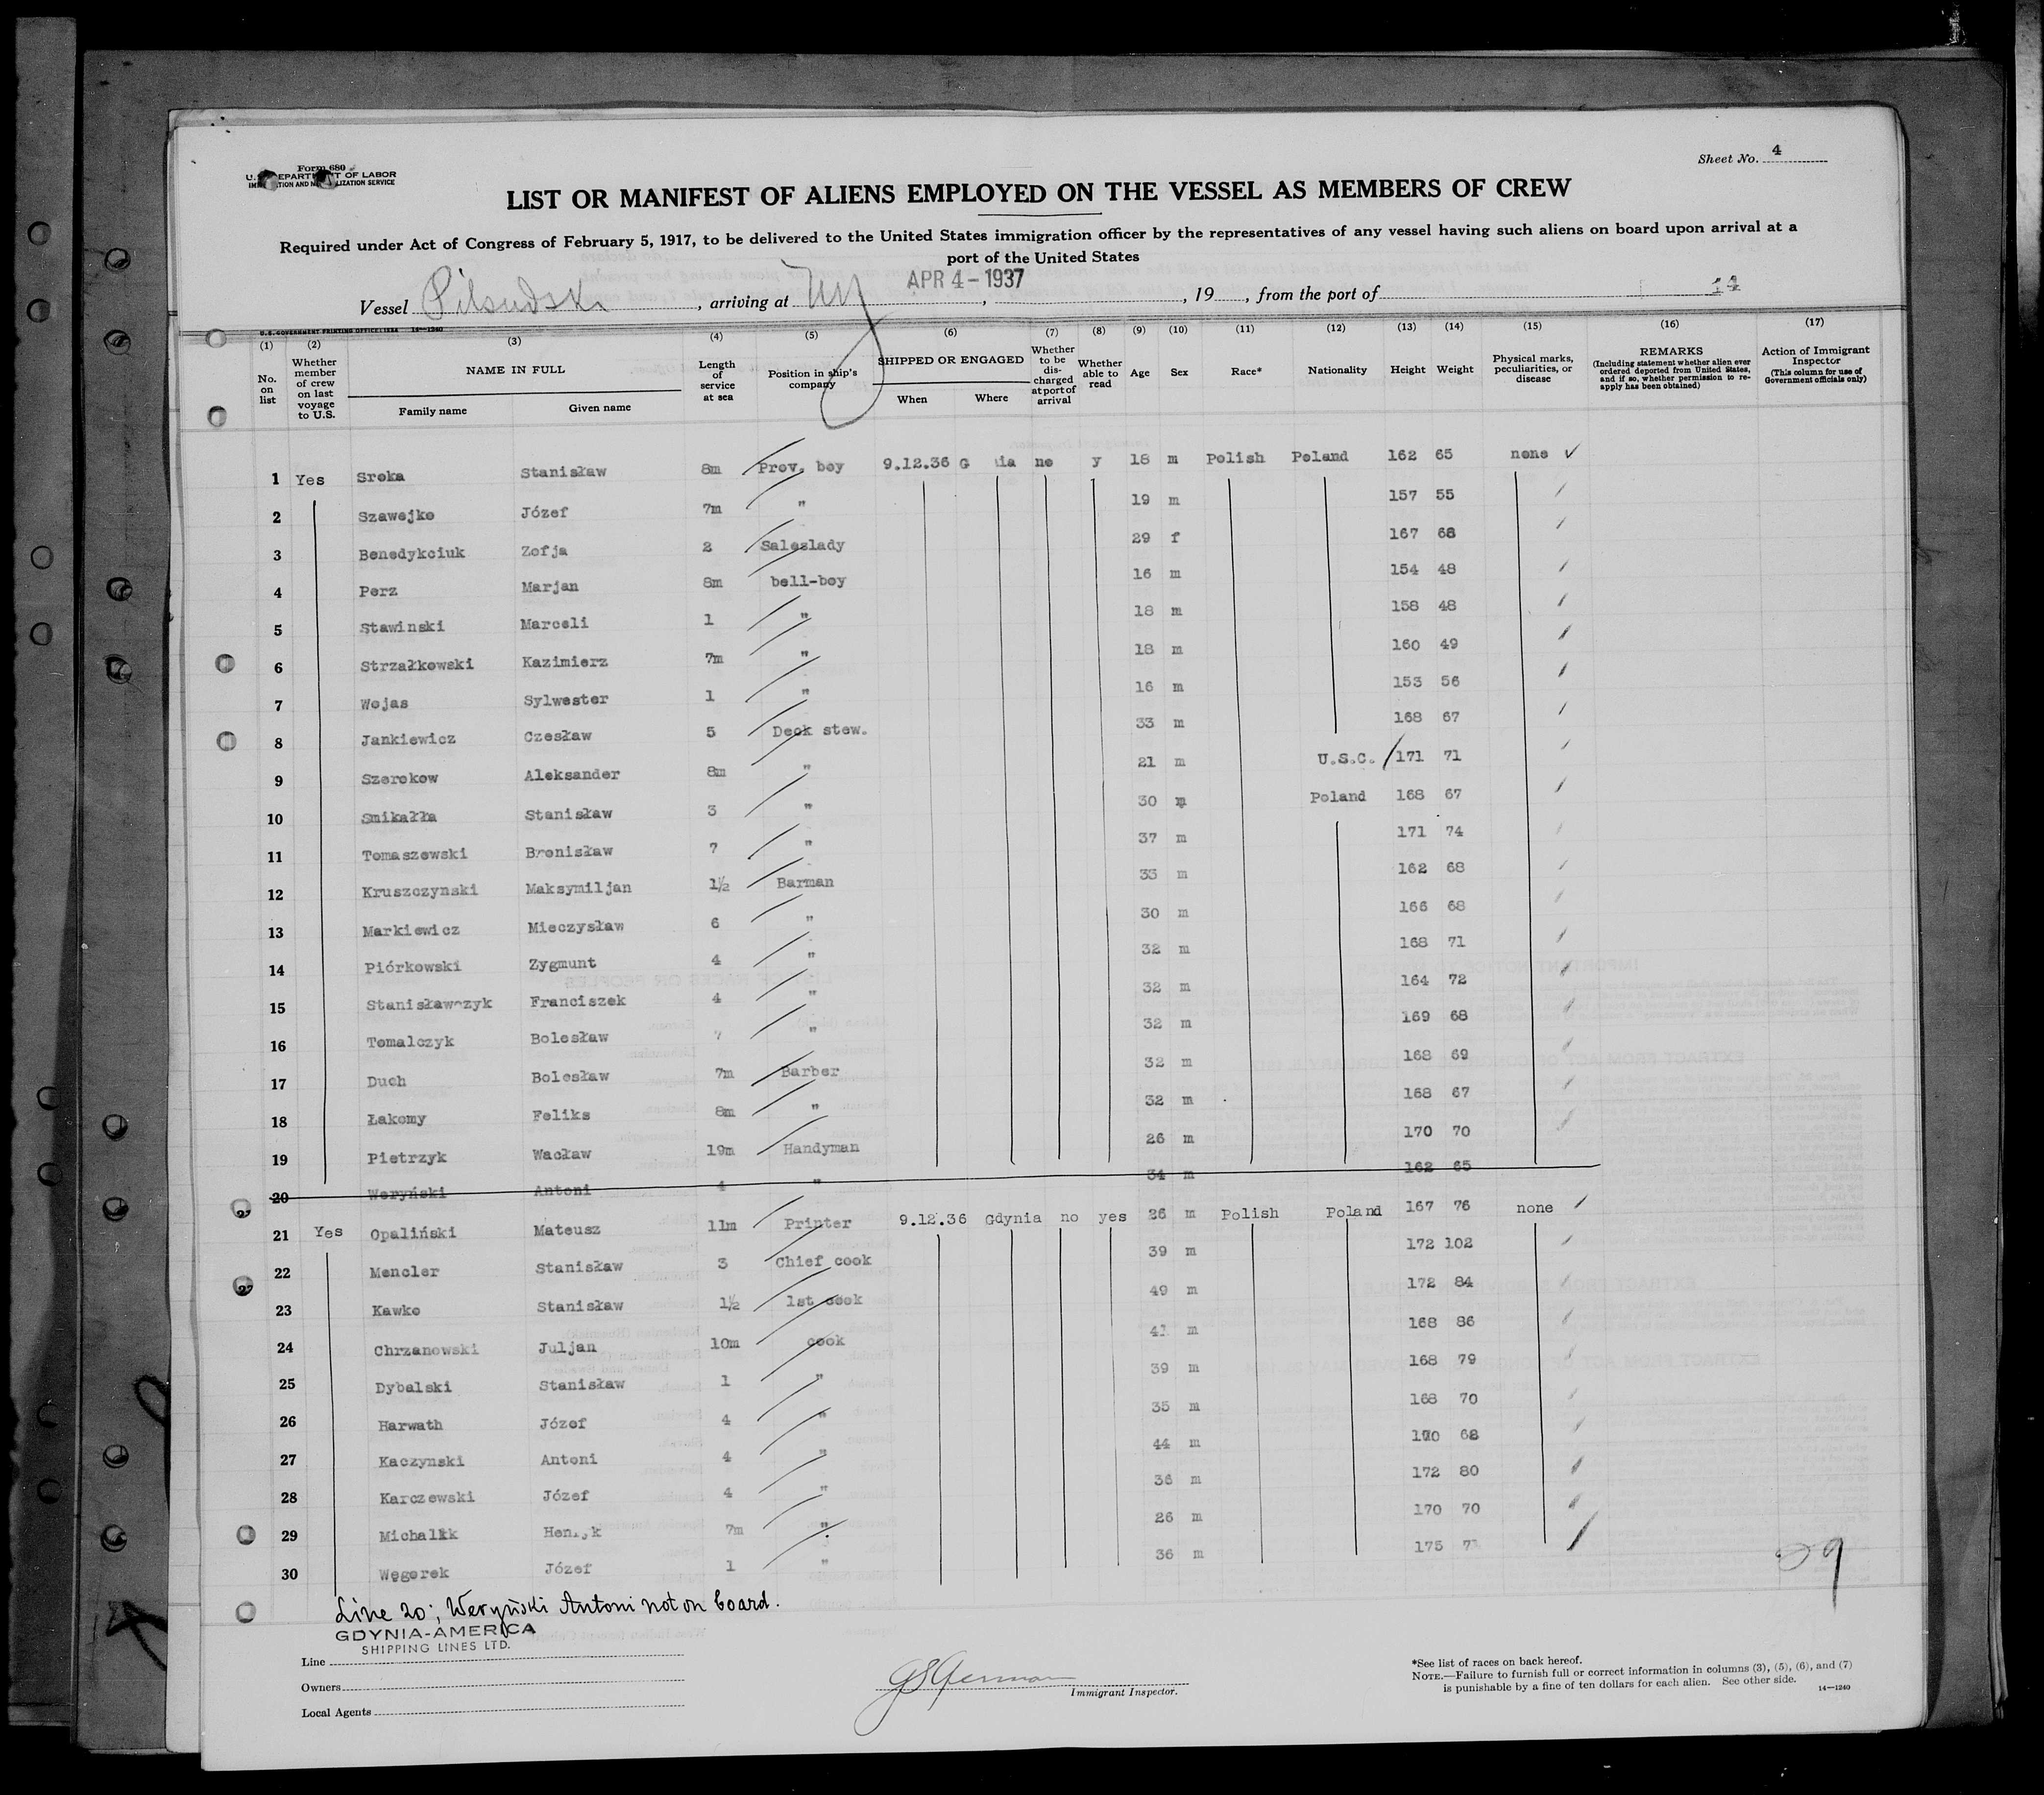 Sheet No. 4
Form 680
U. DEPARTMENT OF LABOR
LIST OR MANIFEST OF ALIENS EMPLOYED ON THE VESSEL AS MEMBERS OF CREW
Required under Act of Congress of February 5, 1917, to be delivered to the United States immigration officer by the representatives of any vessel having such aliens on board upon arrival at a
port of the United States
Vessel Pilsudski, arriving at NY APR 4 - 1937, 19, from the port of 14
U.S. GOVERNMENT PRINTING OFFICE 14—1240
(1) (2) (3) (4) (5) (6) (7) (8) (9) (10) (11) (12) (13) (14) (15) (16) (17)
No. on list Whether member of crew on last voyage to U.S. NAME IN FULL Family name Given name Length of service at sea Position in ship's company SHIPPED OR ENGAGED When Where Whether to be discharged at port of arrival Whether able to read Age Sex Race* Nationality Height Weight Physical marks, peculiarities, or disease REMARKS (Including statement whether alien ever ordered deported from United States, and if so, whether permission to reapply has been obtained) Action of Immigrant Inspector (This column for use of Government officials only)
1 Yes Sroka Stanisław 8m Prov. boy 9.12.36 G ia no y 18 m Polish Poland 162 65 none ✓
2 Szawejko Józef 7m " 19 m 157 55
3 Benedykciuk Zofja 2 Saleslady 29 f 167 68
4 Perz Marjan 8m bell-boy 16 m 154 48
5 Stawinski Marceli 1 " 18 m 158 48
6 Strzałkowski Kazimierz 7m " 18 m 160 49
7 Wojas Sylwester 1 " 16 m 153 56
8 Jankiewicz Czesław 5 Deck stew. 33 m 168 67
9 Szerokow Aleksander 8m " 21 m U.S.C. 171 71
10 Smikałła Stanisław 3 " 30 m Poland 168 67
11 Tomaszewski Bronisław 7 " 37 m 171 74
12 Kruszczynski Maksymiljan 1½ Barman 33 m 162 68
13 Markiewicz Mieczysław 6 " 30 m 166 68
14 Piórkowski Zygmunt 4 " 32 m 168 71
15 Stanisławczyk Franciszek 4 " 32 m 164 72
16 Tomalczyk Bolesław 7 " 32 m 169 68
17 Duch Bolesław 7m Barber 32 m 168 69
18 Łakomy Feliks 8m " 32 m 168 67
19 Pietrzyk Wacław 19m Handyman 26 m 170 70
20 Weryński Antoni 4 " 34 m 162 65
21 Yes Opaliński Mateusz 11m Printer 9.12.36 Gdynia no yes 26 m Polish Poland 167 76 none
22 Mencler Stanisław 3 Chief cook 39 m 172 102
23 Kawko Stanisław 1½ 1st cook 49 m 172 84
24 Chrzanowski Juljan 10m cook 41 m 168 86
25 Dybalski Stanisław 1 " 39 m 168 79
26 Harwath Józef 4 " 35 m 168 70
27 Kaczynski Antoni 4 " 44 m 170 68
28 Karczewski Józef 4 " 36 m 172 80
29 Michalik Henryk 7m " 26 m 170 70
30 Węgorek Józef 1 " 36 m 175
29
Line 20; Weryński Antoni not on board.
GDYNIA-AMERICA
SHIPPING LINES LTD.
Line
Owners
Local Agents
Immigrant Inspector.
*See list of races on back hereof.
NOTE.—Failure to furnish full or correct information in columns (3), (5), (6), and (7)
is punishable by a fine of ten dollars for each alien. See other side.
14—1240